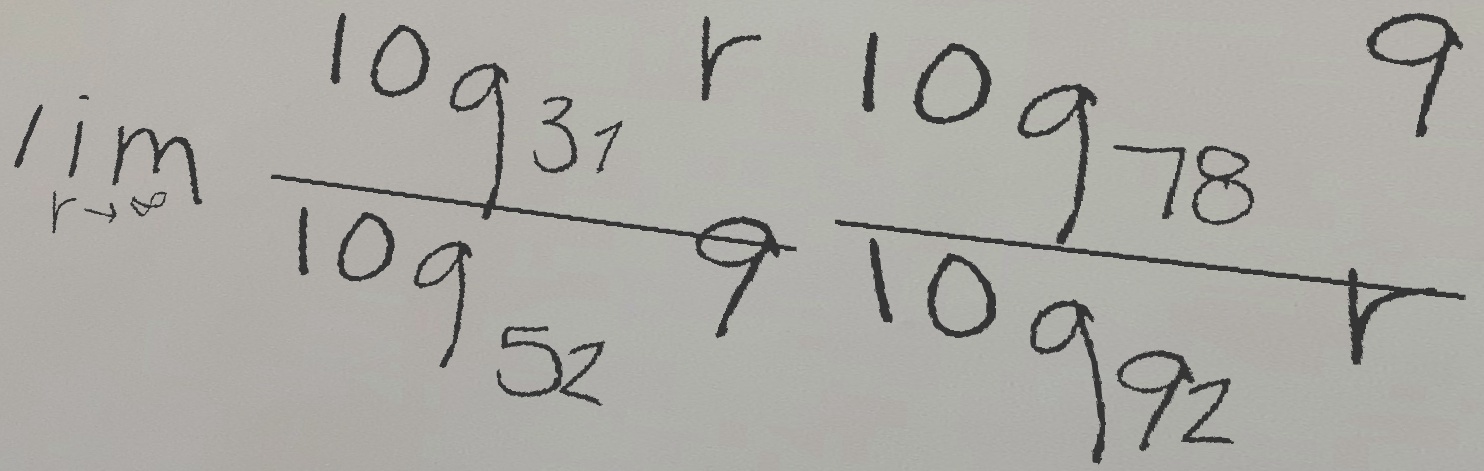 lim_{r→∞} \frac{log_{31} r}{log_{52} 9} \frac{log_{78} 9}{log_{92} r}